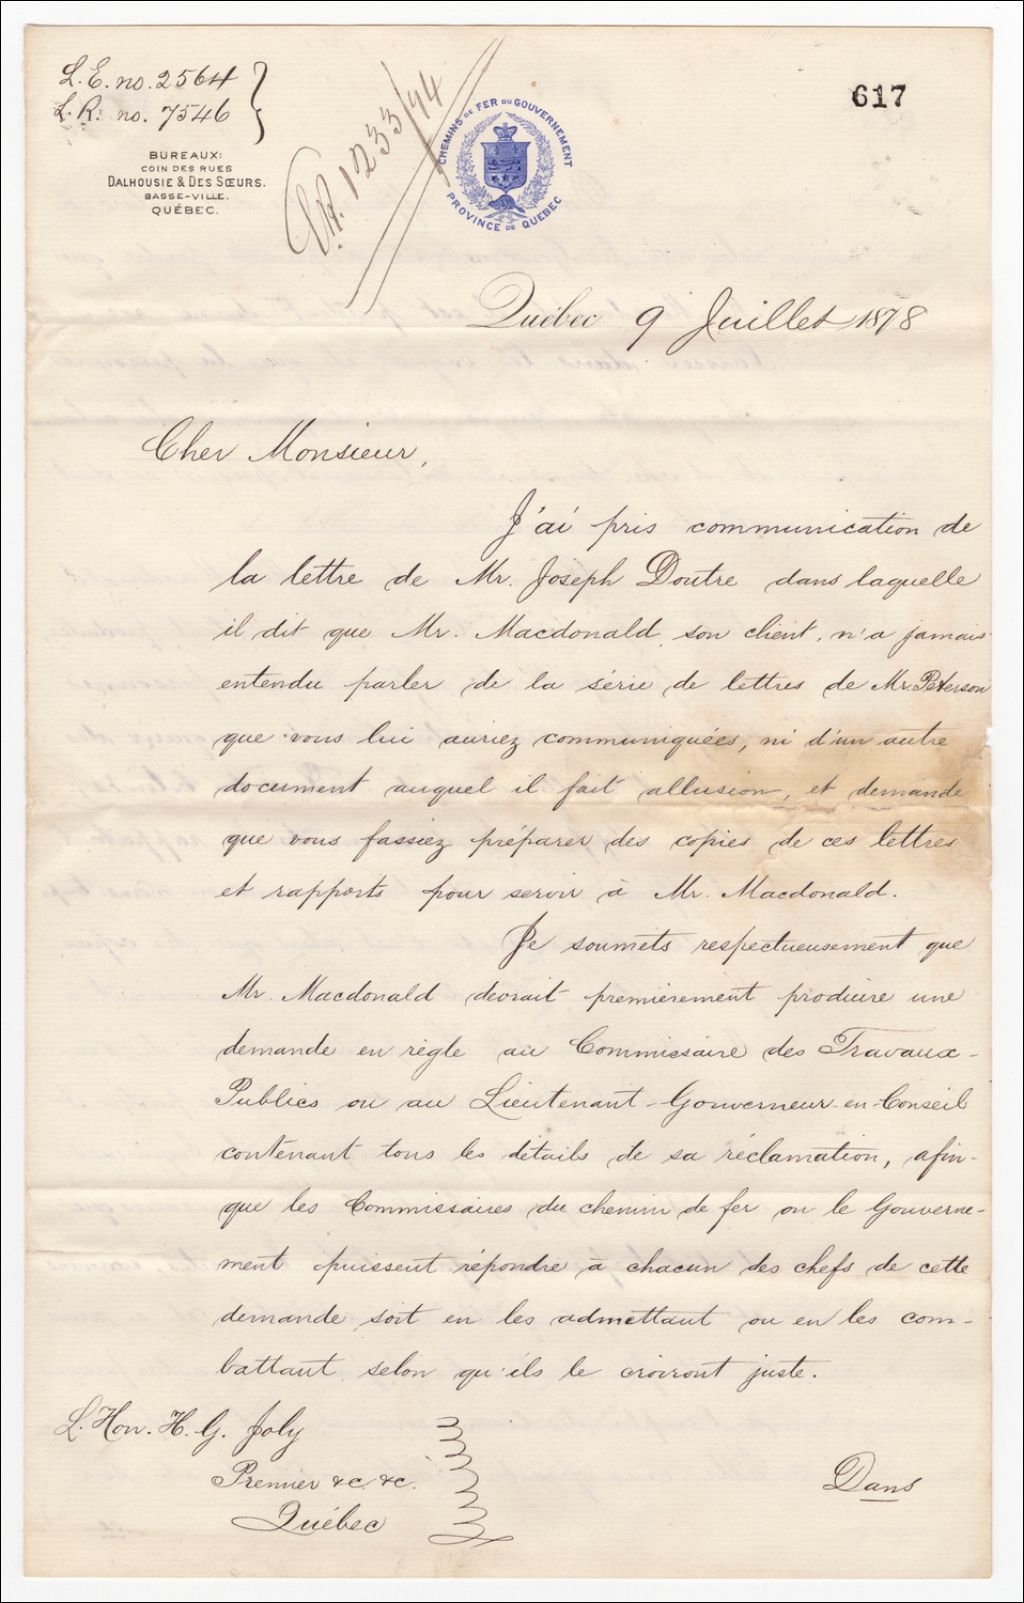 L. E. no. 2564
L. R. no. 7546
617
1233/94
BUREAUX:
COIN DES RUES
DALHOUSIE & DES SŒURS.
BASSE-VILLE.
QUÉBEC.
CHEMINS DE FER DU GOUVERNEMENT
PROVINCE DE QUEBEC
Québec 9 Juillet 1878
Cher Monsieur,
J'ai pris communication de
la lettre de Mr. Joseph Doutre dans laquelle
il dit que Mr. Macdonald, son client, n'a jamais
entendu parler de la série de lettres de Mr. Peterson
que vous lui auriez communiquées, ni d'un autre
document auquel il fait allusion, et demande
que vous fassiez préparer des copies de ces lettres
et rapports pour servir à Mr. Macdonald.
Je soumets respectueusement que
Mr. Macdonald devrait premièrement produire une
demande en règle au Commissaire des Travaux-
Publics ou au Lieutenant-Gouverneur-en-Conseil
contenant tous les détails de sa réclamation, afin-
que les Commissaires du chemin de fer ou le Gouverne-
ment puissent répondre à chacun des chefs de cette
demande soit en les admettant ou en les com-
battant, selon qu'ils le croiront juste.
L. Hon. H. G. Joly
Premier &c. &c.
Québec
Dans